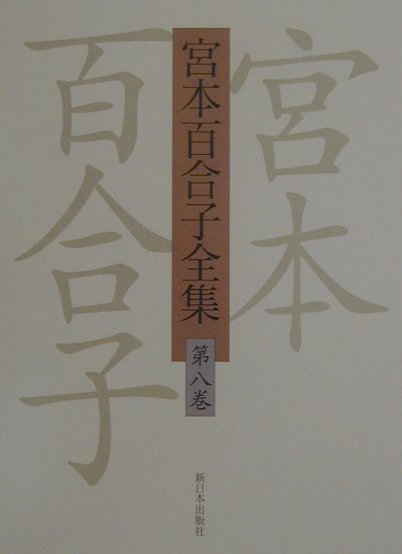 宮本
百合子
宮本百合子全集
第八巻
新日本出版社